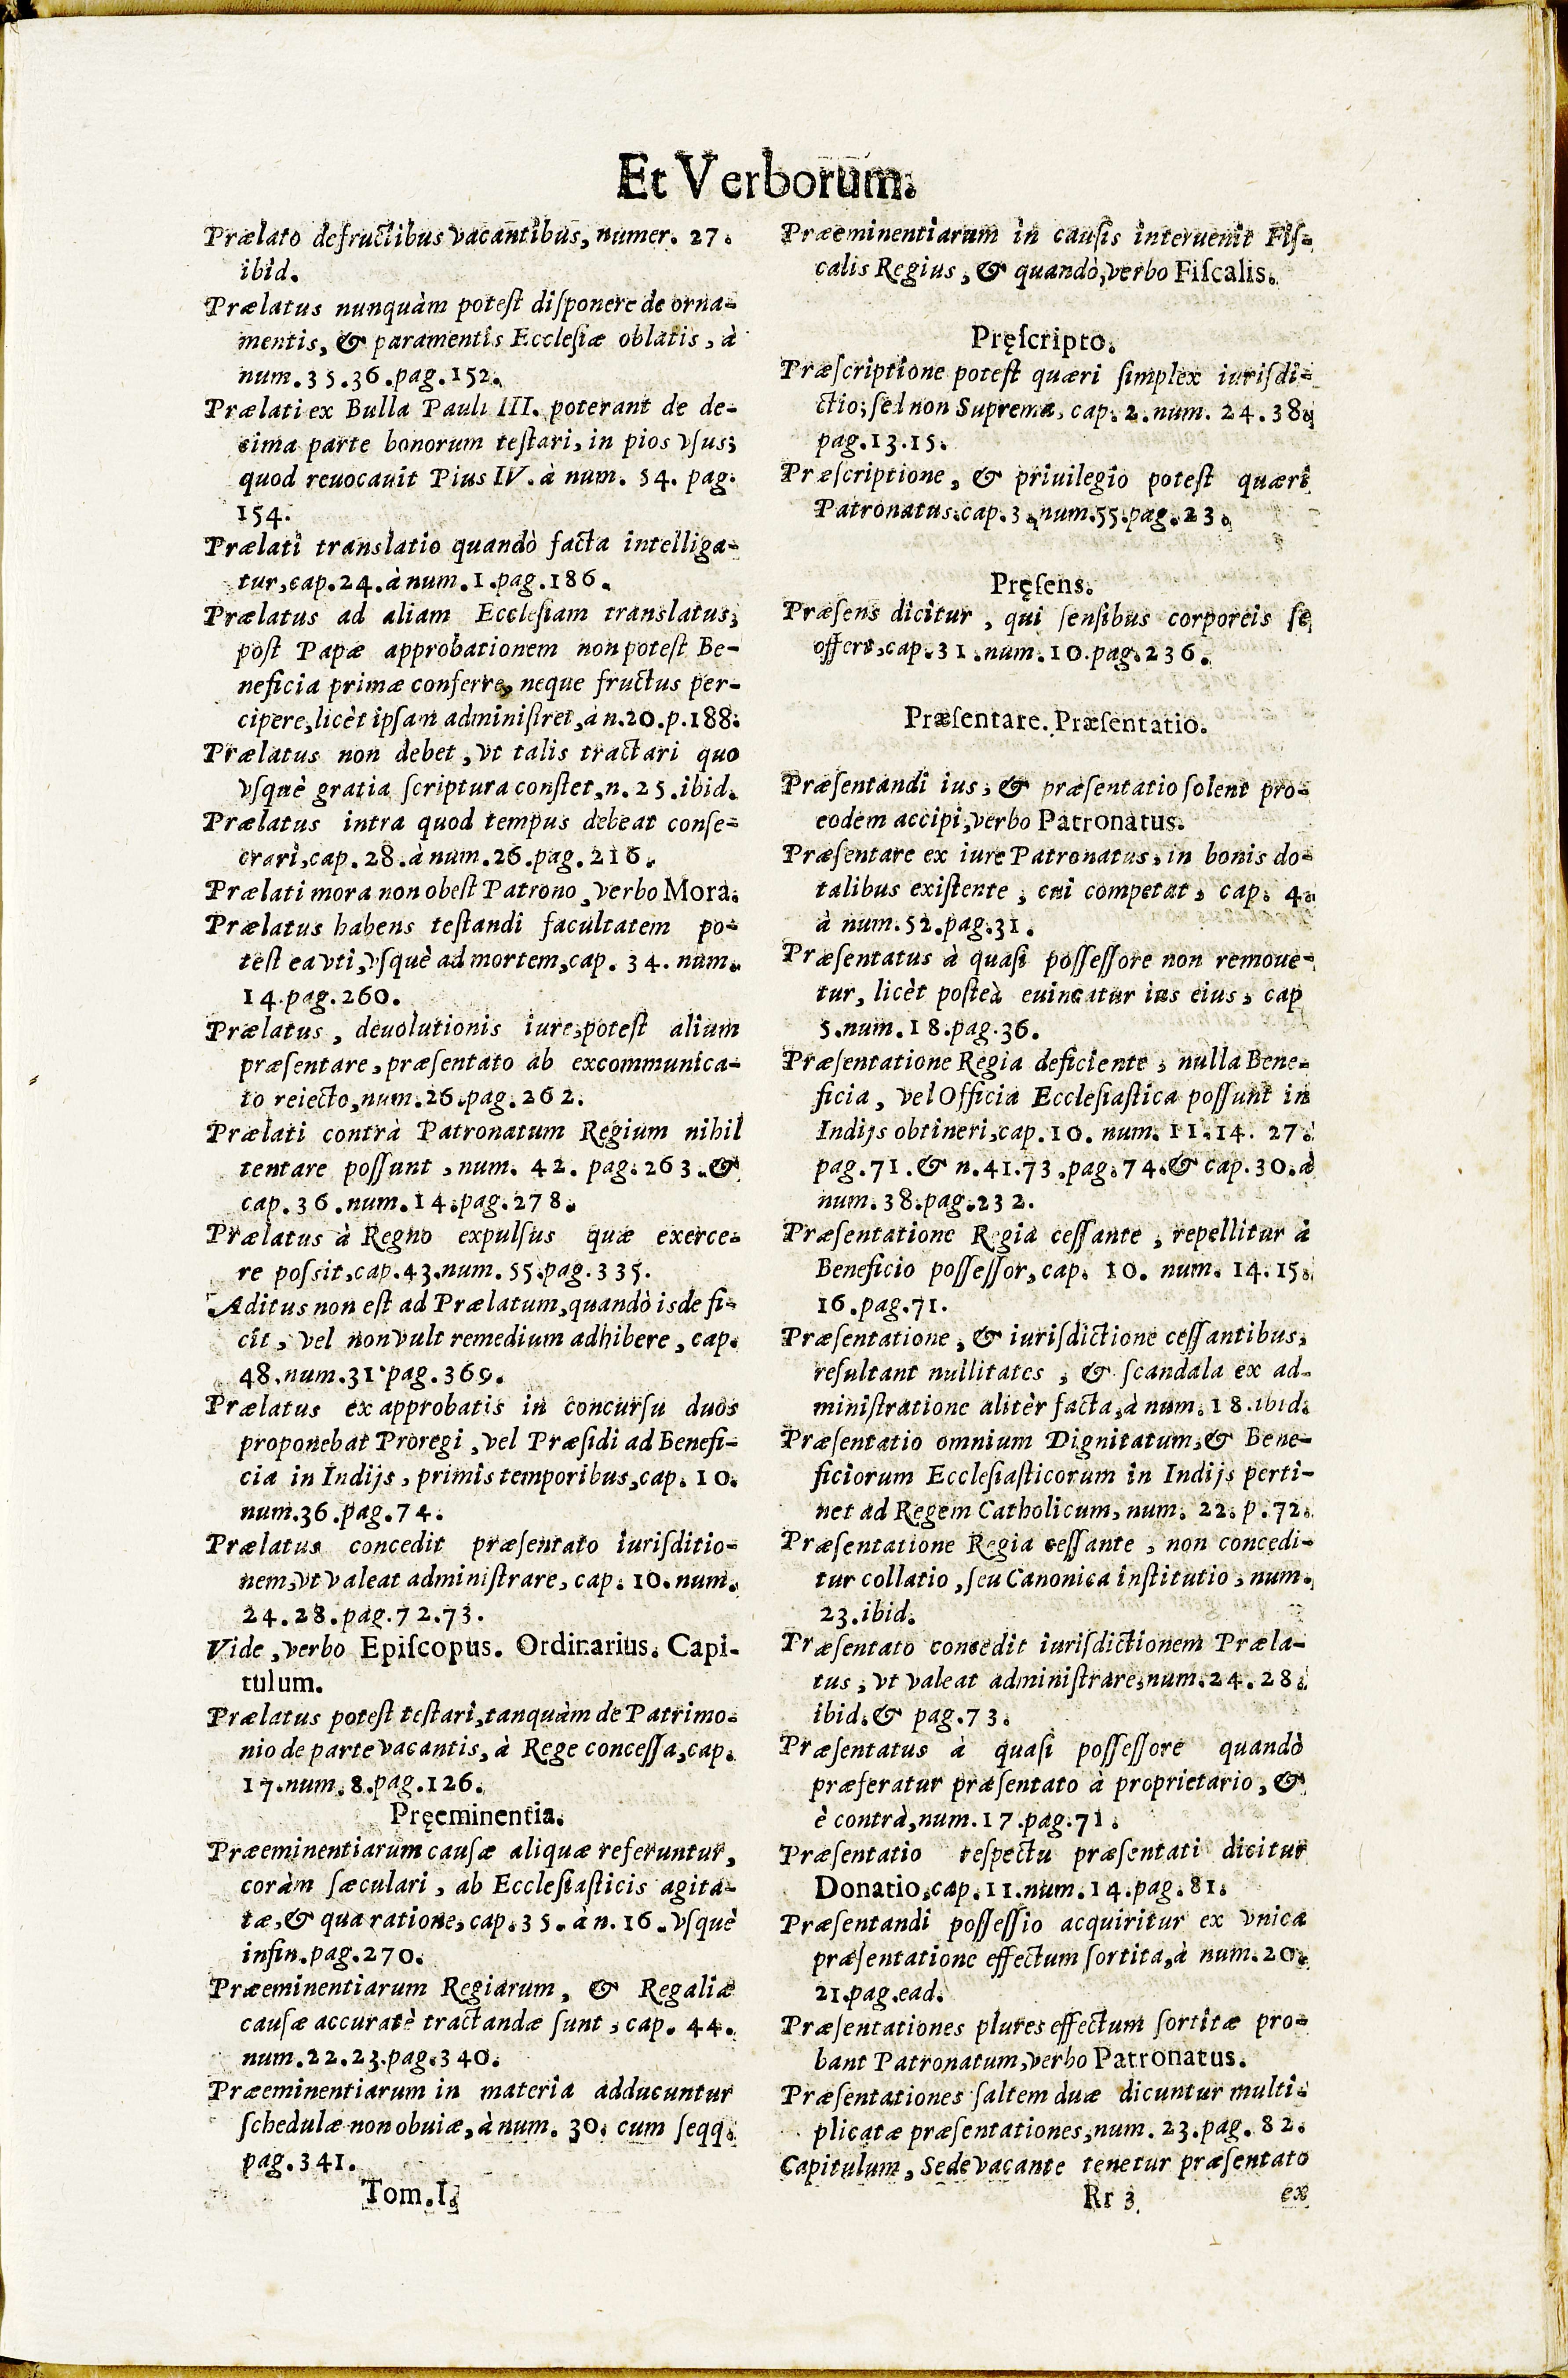 Et Verborum.
Prælato de fructibus vacantibus, numer. 27.
ibid.
Prælatus nunquàm poteſt diſponere de orna-
mentis, & paramentis Eccleſiæ oblatis, à
num. 35. 36. pag. 152.
Prælati ex Bulla Pauli III. poterant de de-
cima parte bonorum teſtari, in pios vſus;
quod reuocauit Pius IV. à num. 54. pag.
154.
Prælati translatio quandò facta intelliga-
tur, cap. 24. à num. 1. pag. 186.
Prælatus ad aliam Eccleſiam translatus;
poſt Papæ approbationem non poteſt Be-
neficia primæ conferre, neque fructus per-
cipere, licèt ipſam adminiſtret, à n. 20. p. 188.
Prælatus non debet, vt talis tractari quo
vſquè gratia ſcriptura conſtet, n. 25. ibid.
Prælatus intra quod tempus debeat conſe-
crari, cap. 28. à num. 26. pag. 216.
Prælati mora non obeſt Patrono, verbo Mora.
Prælatus habens teſtandi facultatem po-
teſt ea vti, vſquè ad mortem, cap. 34. num.
14. pag. 260.
Prælatus, deuolutionis iure, poteſt alium
præſentare, præſentato ab excommunica-
to reiecto, num. 26. pag. 262.
Prælati contrà Patronatum Regium nihil
tentare poſſunt, num. 42. pag. 263. &
cap. 36. num. 14. pag. 278.
Prælatus à Regno expulſus quæ exerce-
re poſsit, cap. 43. num. 55. pag. 335.
Aditus non eſt ad Prælatum, quandò is defi-
cit, vel non vult remedium adhibere, cap.
48. num. 31. pag. 369.
Prælatus ex approbatis in concurſu duos
proponebat Proregi, vel Præſidi ad Benefi-
cia in Indijs, primis temporibus, cap. 10.
num. 36. pag. 74.
Prælatus concedit præſentato iuriſditio-
nem, vt valeat adminiſtrare, cap. 10. num.
24. 28. pag. 72. 73.
Vide, verbo Epiſcopus. Ordinarius. Capi-
tulum.
Prælatus poteſt teſtari, tanquàm de Patrimo-
nio de parte vacantis, à Rege conceſſa, cap.
17. num. 8. pag. 126.
Pręeminentia.
Præeminentiarum cauſæ aliquæ referuntur,
coràm ſæculari, ab Eccleſiaſticis agita-
tæ, & qua ratione, cap. 35. à n. 16. vſquè
in fin. pag. 270.
Præeminentiarum Regiarum, & Regaliæ
cauſæ accuratè tractandæ ſunt, cap. 44.
num. 22. 23. pag. 340.
Præeminentiarum in materia adducuntur
ſchedulæ non obuiæ, à num. 30. cum ſeqq.
pag. 341.
Tom. I.
Præeminentiarum in cauſis interuenit Fiſ-
calis Regius, & quandò, verbo Fiſcalis.
Pręſcripto.
Præſcriptione poteſt quæri ſimplex iuriſdi-
ctio; ſed non Suprema, cap. 2. num. 24. 38.
pag. 13. 15.
Præſcriptione, & priuilegio poteſt quæri
Patronatus. cap. 3. num. 55. pag. 23.
Pręſens.
Præſens dicitur, qui ſenſibus corporeis ſe
offert, cap. 31. num. 10. pag. 236.
Præſentare. Præſentatio.
Præſentandi ius, & præſentatio ſolent pro
eodem accipi, verbo Patronatus.
Præſentare ex iure Patronatus, in bonis do-
talibus exiſtente, cui competat, cap. 4.
à num. 52. pag. 31.
Præſentatus à quaſi poſſeſſore non remoue-
tur, licèt poſteà euincatur ius eius, cap
5. num. 18. pag. 36.
Præſentatione Regia deficiente, nulla Bene-
ficia, vel Officia Eccleſiaſtica poſſunt in
Indijs obtineri, cap. 10. num. 11. 14. 27.
pag. 71. & n. 41. 73. pag. 74. & cap. 30. à
num. 38. pag. 232.
Præſentatione Regia ceſſante, repellitur à
Beneficio poſſeſſor, cap. 10. num. 14. 15.
16. pag. 71.
Præſentatione, & iuriſdictione ceſſantibus,
reſultant nullitates, & ſcandala ex ad-
miniſtratione alitèr facta, à num. 18. ibid.
Præſentatio omnium Dignitatum, & Bene-
ficiorum Eccleſiaſticorum in Indijs perti-
net ad Regem Catholicum, num. 22. p. 72.
Præſentatione Regia ceſſante, non concedi-
tur collatio, ſeu Canonica inſtitutio, num.
23. ibid.
Præſentato concedit iuriſdictionem Præla-
tus, vt valeat adminiſtrare, num. 24. 28.
ibid. & pag. 73.
Præſentatus à quaſi poſſeſſore quandò
præferatur præſentato à proprietario, &
è contrà, num. 17. pag. 71.
Præſentatio reſpectu præſentati dicitur
Donatio, cap. 11. num. 14. pag. 81.
Præſentandi poſſeſſio acquiritur ex vnica
præſentatione effectum ſortita, à num. 20.
21. pag. ead.
Præſentationes plures effectum ſortitæ pro-
bant Patronatum, verbo Patronatus.
Præſentationes ſaltem duæ dicuntur multi-
plicatæ præſentationes, num. 23. pag. 82.
Capitulum, Sede vacante tenetur præſentato
Rr 3
ex